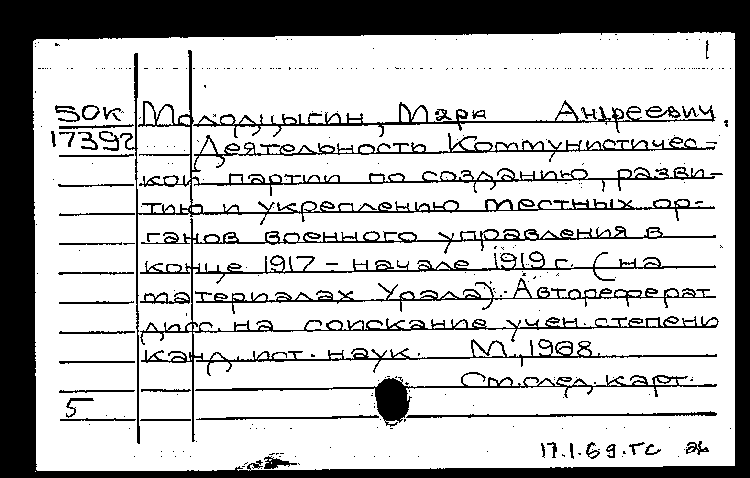 1
50К Молодцыгин, Марк Андреевич.
17392 Деятельность Коммунистичес-
кой партии по созданию, разви-
тию и укреплению местных ор-
ганов военного управления в
конце 1917 - начале 1919 г. (на
материалах Урала). Автореферат
дисс. на соискание учен. степени
канд. ист. наук. М., 1968.
См. след. карт.
5
17.1.69.ГС